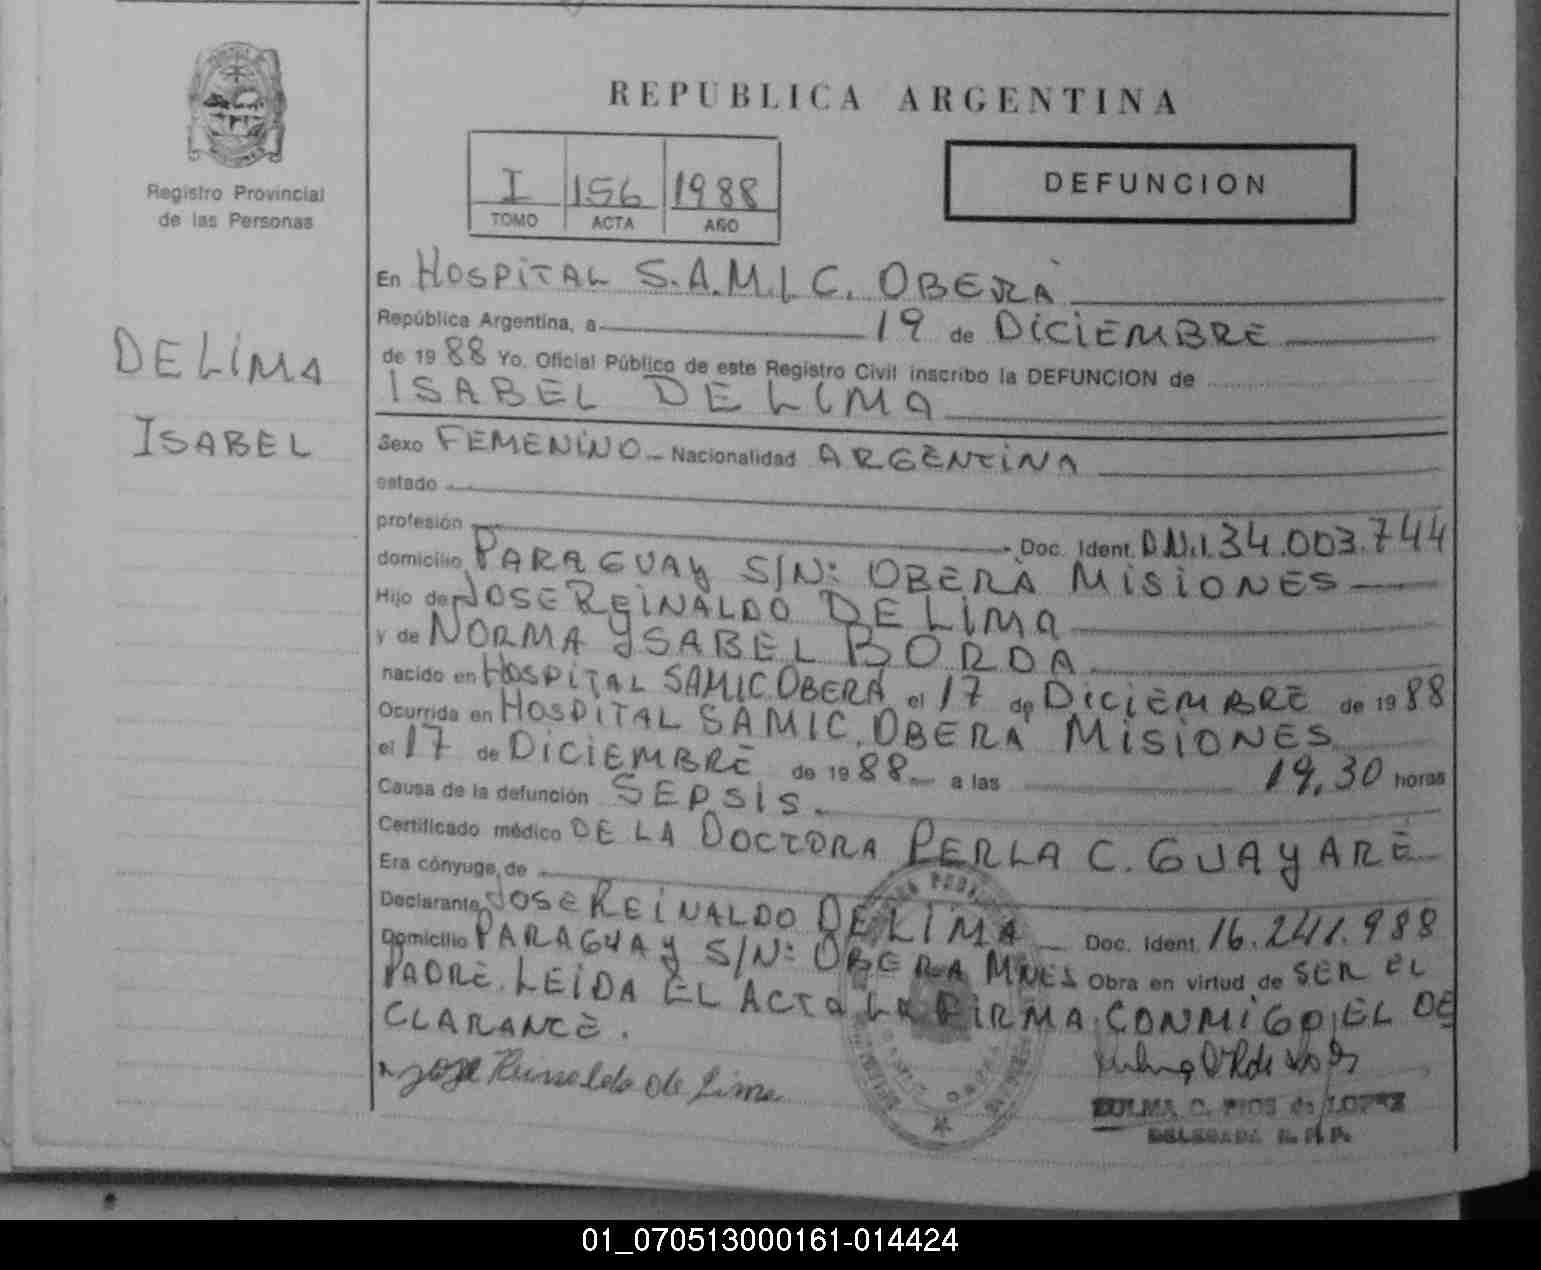 REPUBLICA ARGENTINA
Registro Provincial
de las Personas
I 156 1988
TOMO ACTA AÑO
DEFUNCION
DE LIMA
ISABEL
En HOSPITAL S.A.M.I.C. OBERÁ
República Argentina, a 19 de DICIEMBRE
de 1988 Yo, Oficial Público de este Registro Civil inscribo la DEFUNCION de
ISABEL DE LIMA
Sexo FEMENINO Nacionalidad ARGENTINA
estado
profesión Doc. Ident. D.N.I. 34.003.744
domicilio PARAGUAY S/N: OBERÁ MISIONES
Hijo de JOSE REGINALDO DE LIMA
y de NORMA YSABEL BORDA
nacido en HOSPITAL SAMIC. OBERÁ el 17 de DICIEMBRE de 1988
Ocurrida en HOSPITAL SAMIC. OBERÁ MISIONES
el 17 de DICIEMBRE de 1988 a las 19,30 horas
Causa de la defunción SEPSIS.
Certificado médico DE LA DOCTORA PERLA C. GUAYARÉ
Era cónyuge de
Declarante JOSE REINALDO DE LIMA Doc. Ident. 16.241.988
Domicilio PARAGUAY S/N: OBERÁ MNES Obra en virtud de SER EL
PADRE. LEIDA EL ACTA LA FIRMA CONMIGO, EL DE
CLARANTE.
Jose Reinaldo de Lima
ZULMA C. RIOS de LOPEZ
DELEGADA R.P.P.
01_070513000161-014424